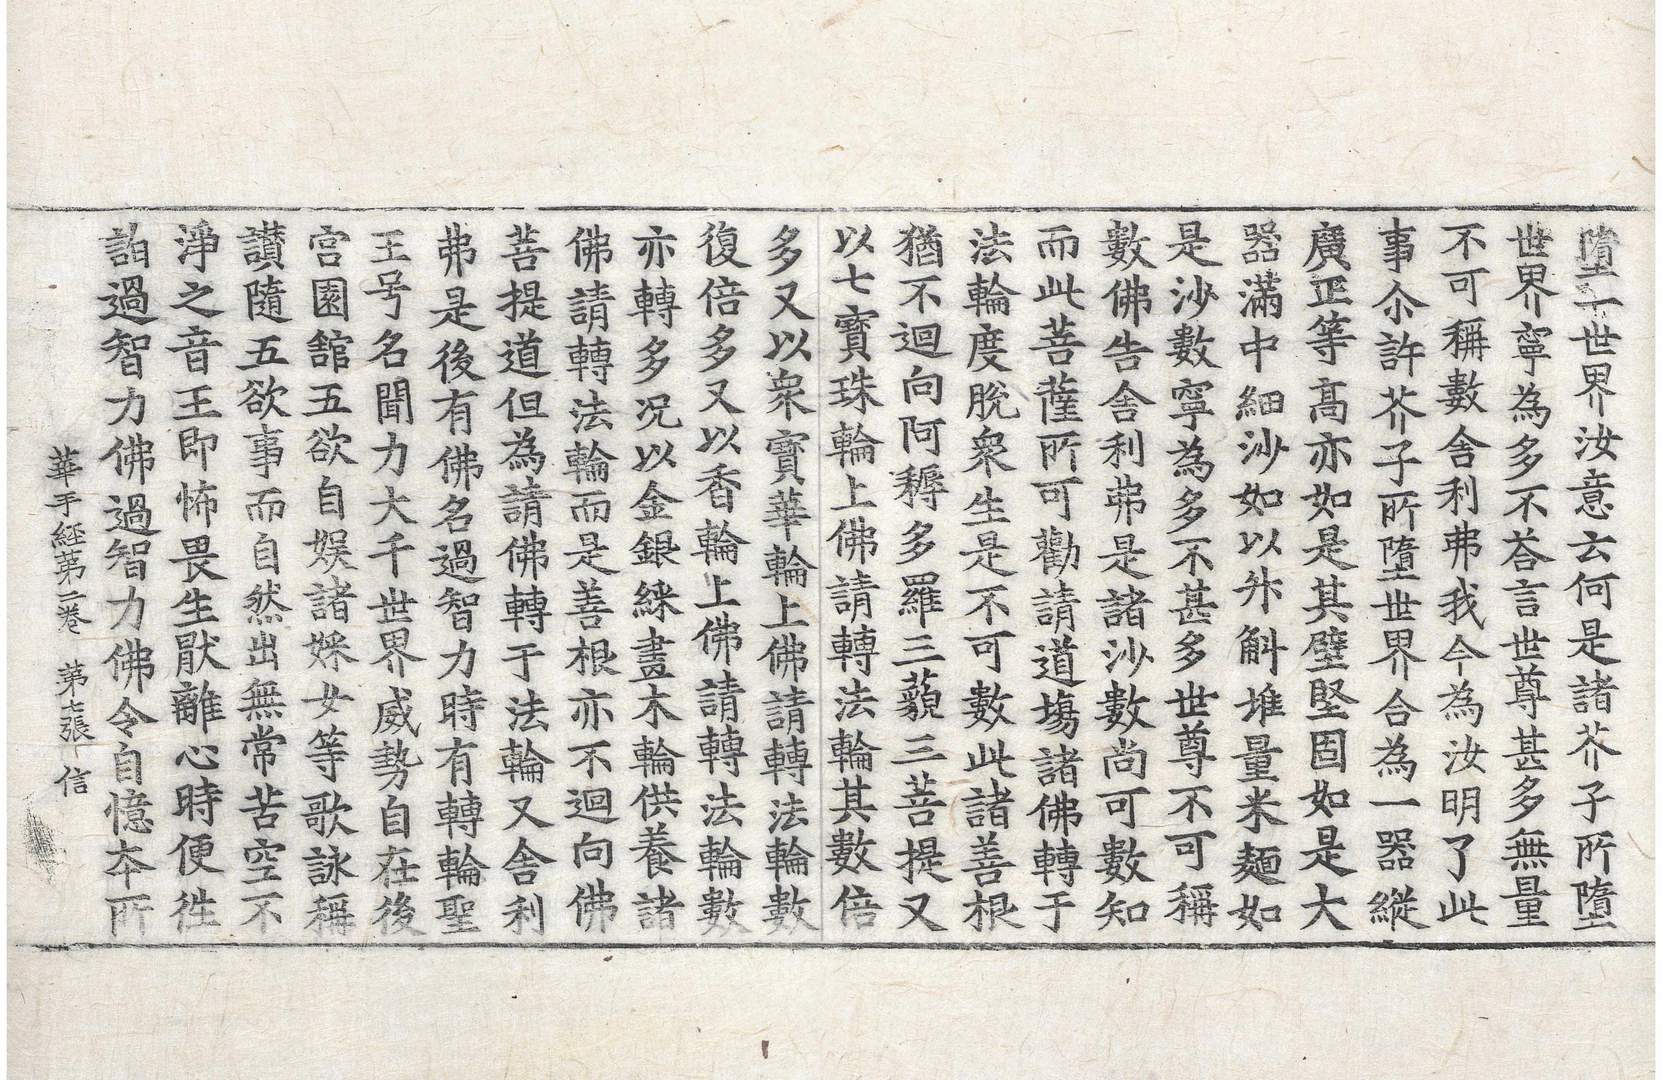 墮一世界汝意云何是諸芥子所墮
世界寧為多不荅言世尊甚多無量
不可稱數舍利弗我今為汝明了此
事尒許芥子所墮世界合為一器縱
廣正等高亦如是其壁堅固如是大
器滿中細沙如以升斛堆量米麵如
是沙數寧為多不甚多世尊不可稱
數佛告舍利弗是諸沙數尚可數知
而此菩薩所可勸請道塲諸佛轉于
法輪度脫衆生是不可數此諸善根
猶不迴向阿耨多羅三藐三菩提又
以七寶珠輪上佛請轉法輪其數倍
多又以衆寶華輪上佛請轉法輪數
復倍多又以香輪上佛請轉法輪數
亦轉多况以金銀綵畫木輪供養諸
佛請轉法輪而是善根亦不迴向佛
菩提道但為請佛轉于法輪又舍利
弗是後有佛名過智力時有轉輪聖
王号名聞力大千世界威勢自在後
宮園舘五欲自娛諸婇女等歌詠稱
讃隨五欲事而自然出無常苦空不
淨之音王即怖畏生猒離心時便徃
詣過智力佛過智力佛令自憶本所
華手經第二卷 第七張 信